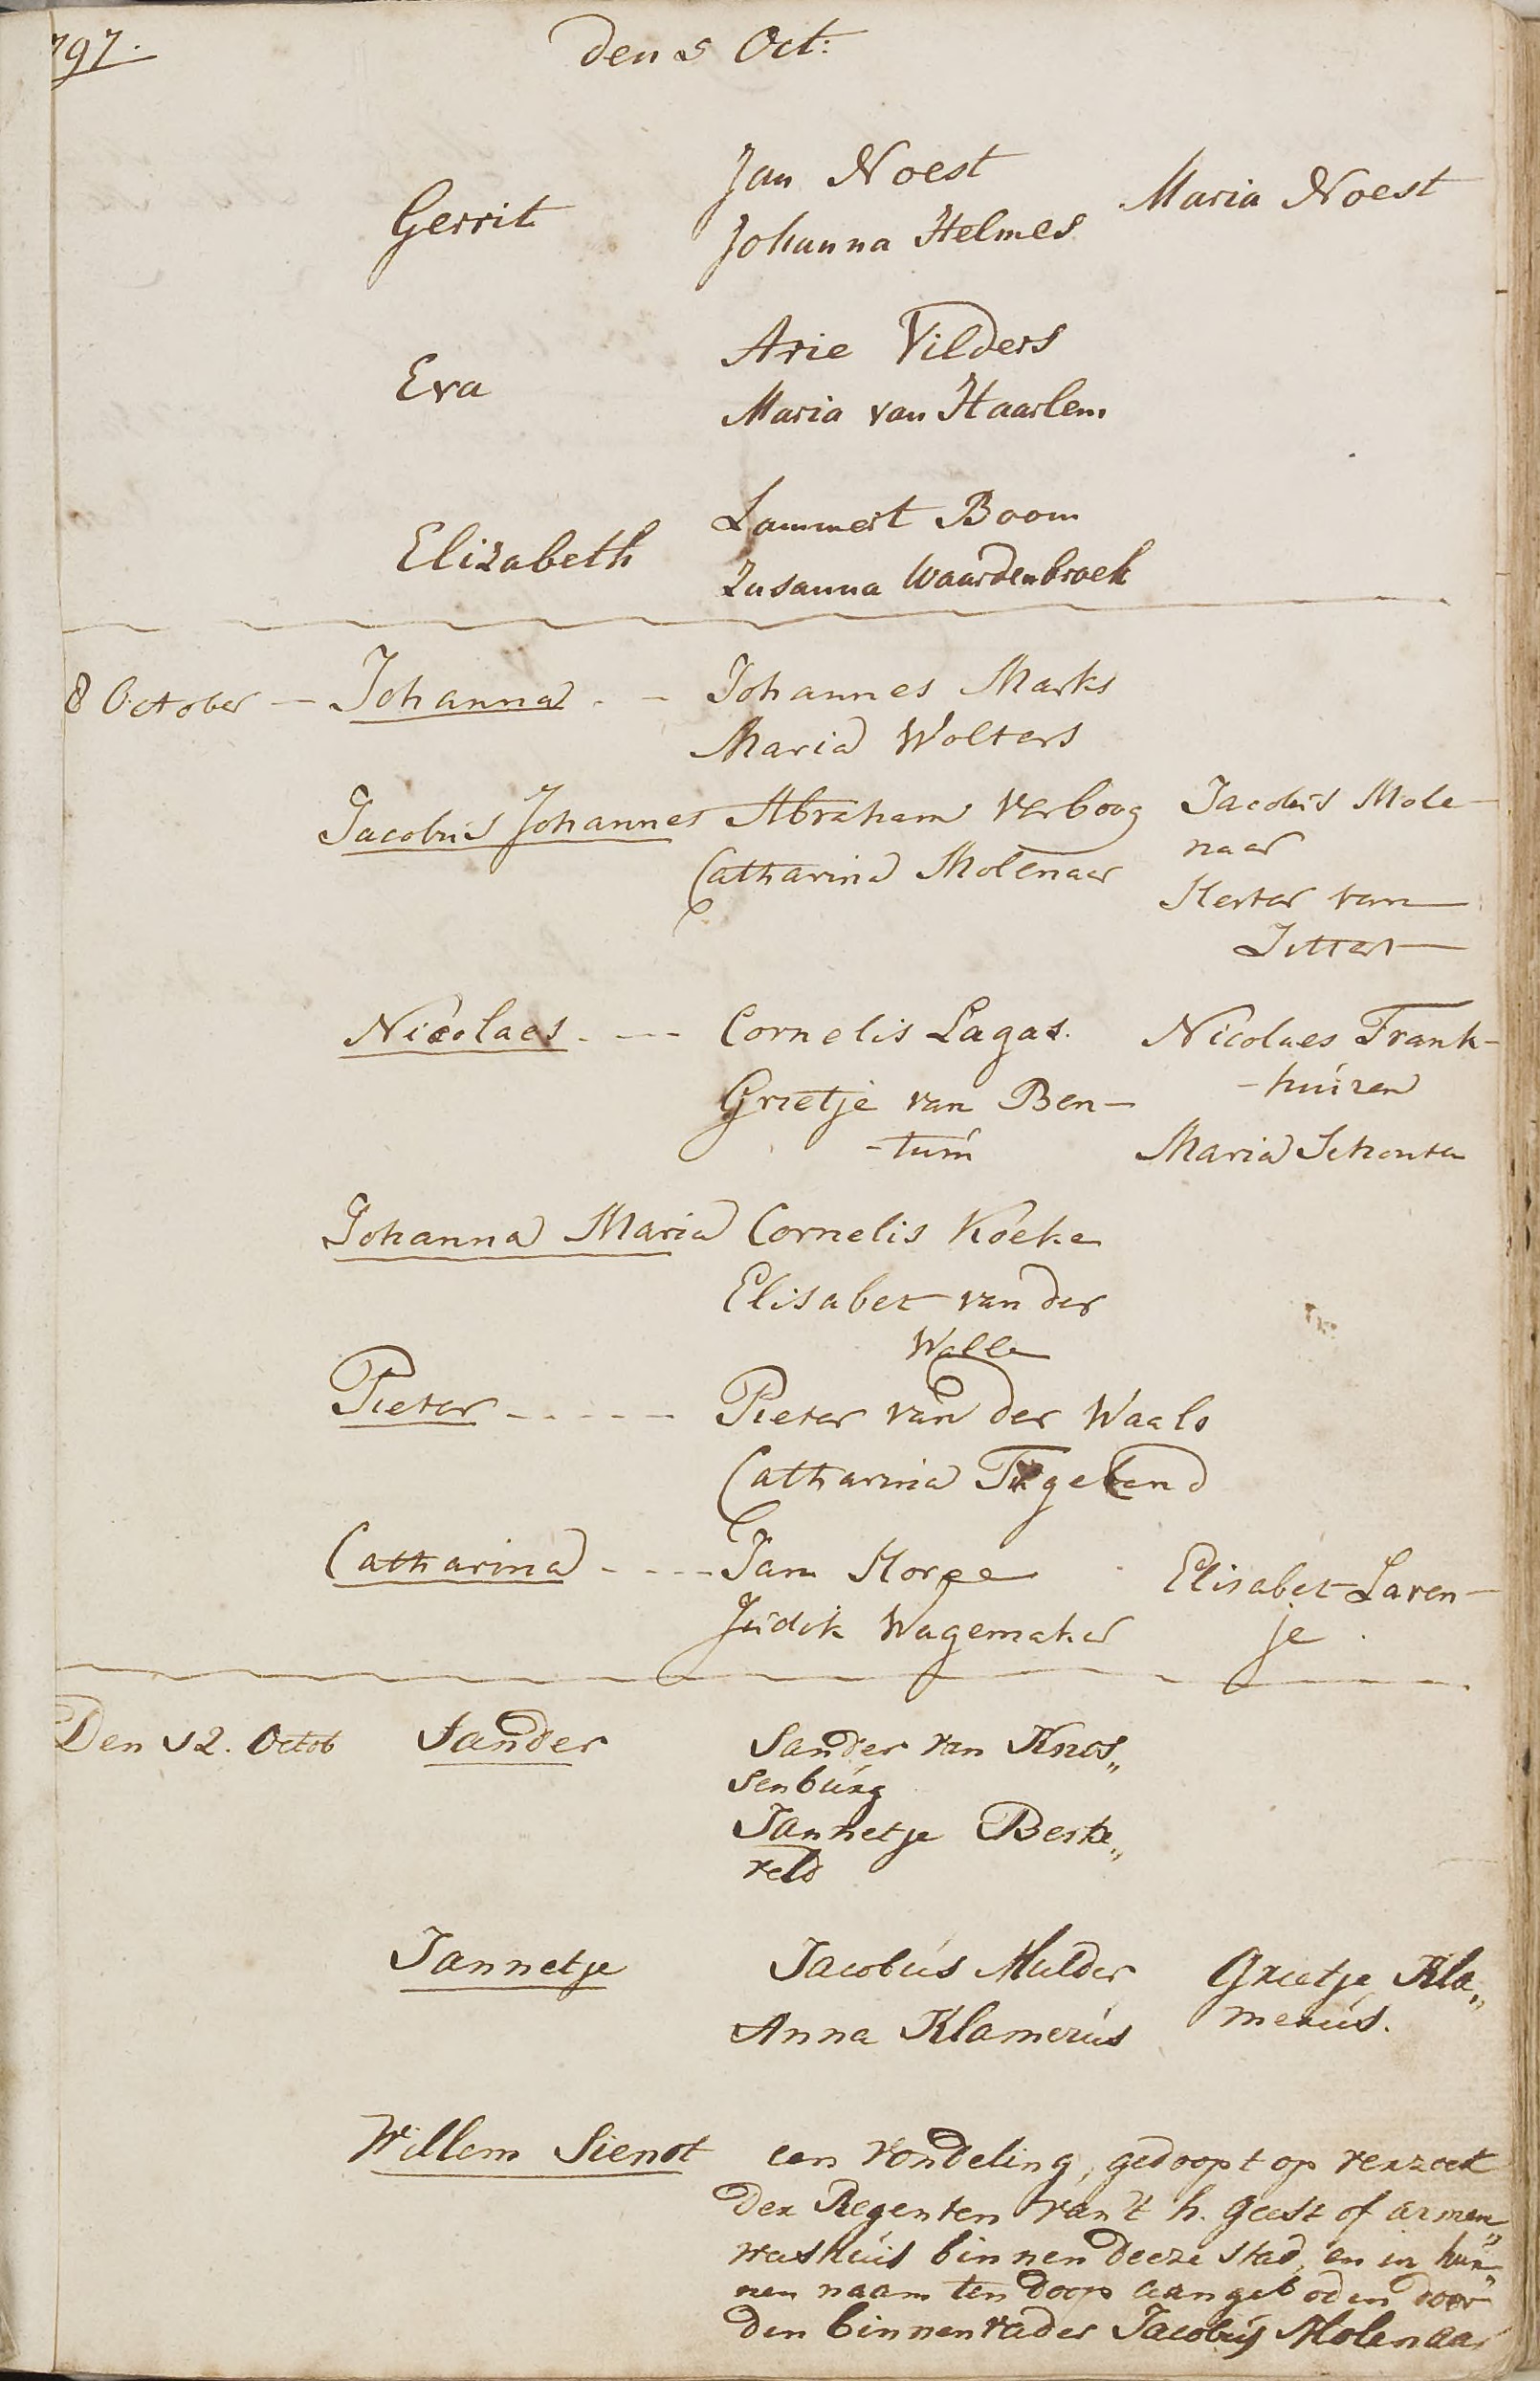 797.
den 5 Oct:
Gerrit
Jan Noest
Johanna Helmes
Maria Noest
Eva
Arie Vilders
Maria van Haarlem
Elizabeth
Lammert Boom
Zusanna Waardenbroek
8 October — Johanna . - Johannes Marks
Maria Wolters
Jacobus Johannes Abraham Verboog
Catharina Molenaar
Jacobus Mole-
naar
Hester van
Sittert
Nicolaes . --- Cornelis Lagas.
Grietje van Ben-
-tum
Nicolaes Frank-
-huizen
Maria Schouten
Johanna Maria Cornelis Koeke
Elisabet van der
Walle
Pieter - - - - - Pieter van der Waals
Catharina
Catharina - - - - Jan
Judik Wagemaker
Elisabet Laren-
je.
Den 12. Octob
Sander
Sander van Knos„
senburg
Jannetje Berke„
veld
Jannetje
Jacobus Mulder
Anna Klamerus
Grietje Kla„
merus.
Willem Sienot
een vondeling, gedoopt op verzoek
der Regenten van 't h. geest of armen„
weshuis binnen deeze stad, en in hun„
nen naam ten doop aangeboden door
den binnenvader Jacobus Molenaar